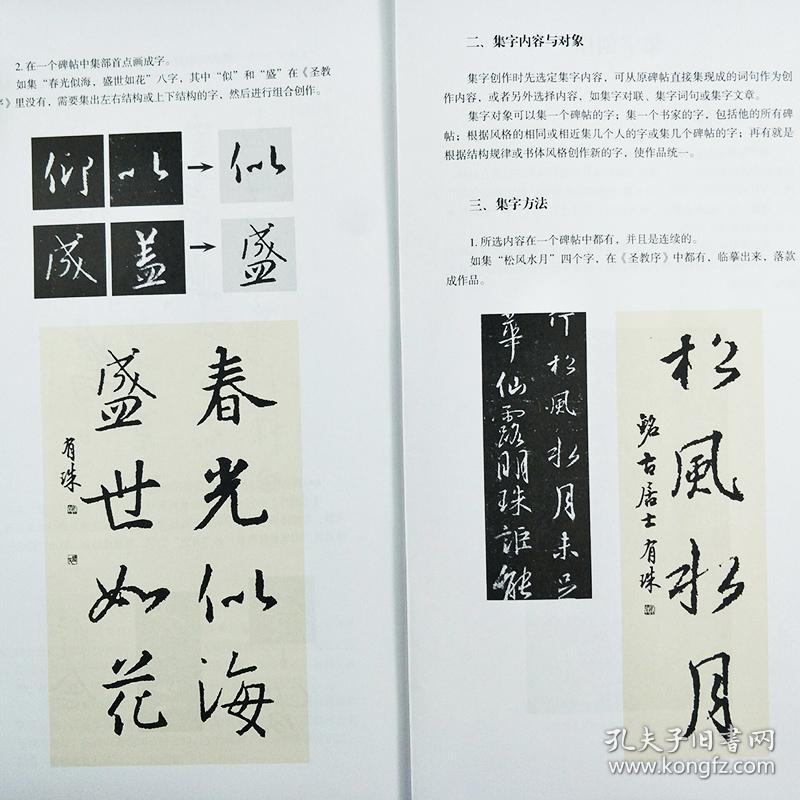 2. 在一个碑帖中集部首点画成字。
如集“春光似海，盛世如花”八字，其中“似”和“盛”在《圣教
序》里没有，需要集出左右结构或上下结构的字，然后进行组合创作。
仰 以 似
成 盖 盛
春光似海
盛世如花
有珠
二、集字内容与对象
集字创作时先选定集字内容，可从原碑帖直接集现成的词句作为创
作内容，或者另外选择内容，如集字对联、集字词句或集字文章。
集字对象可以集一个碑帖的字；集一个书家的字，包括他的所有碑
帖；根据风格的相同或相近集几个人的字或集几个碑帖的字；再有就是
根据结构规律或书体风格创作新的字，使作品统一。
三、集字方法
1. 所选内容在一个碑帖中都有，并且是连续的。
如集“松风水月”四个字，在《圣教序》中都有，临摹出来，落款
成作品。
松風水月未足
華仙露明珠詎能
松風水月
古居士有珠
孔夫子旧书网
www.kongfz.com